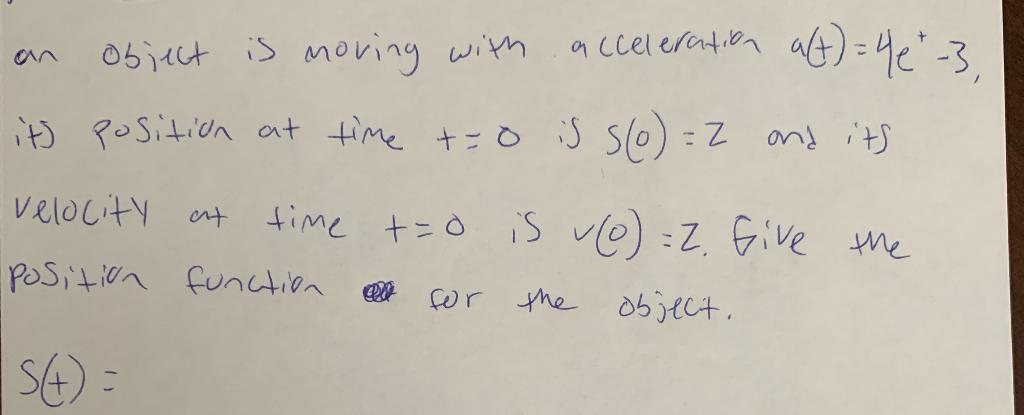 an object is moving with acceleration a(t) = 4e^t - 3,
its position at time t = 0 is s(0) = 2 and its
velocity at time t = 0 is v(0) = 2. Give the
position function for the object.
S(t) =